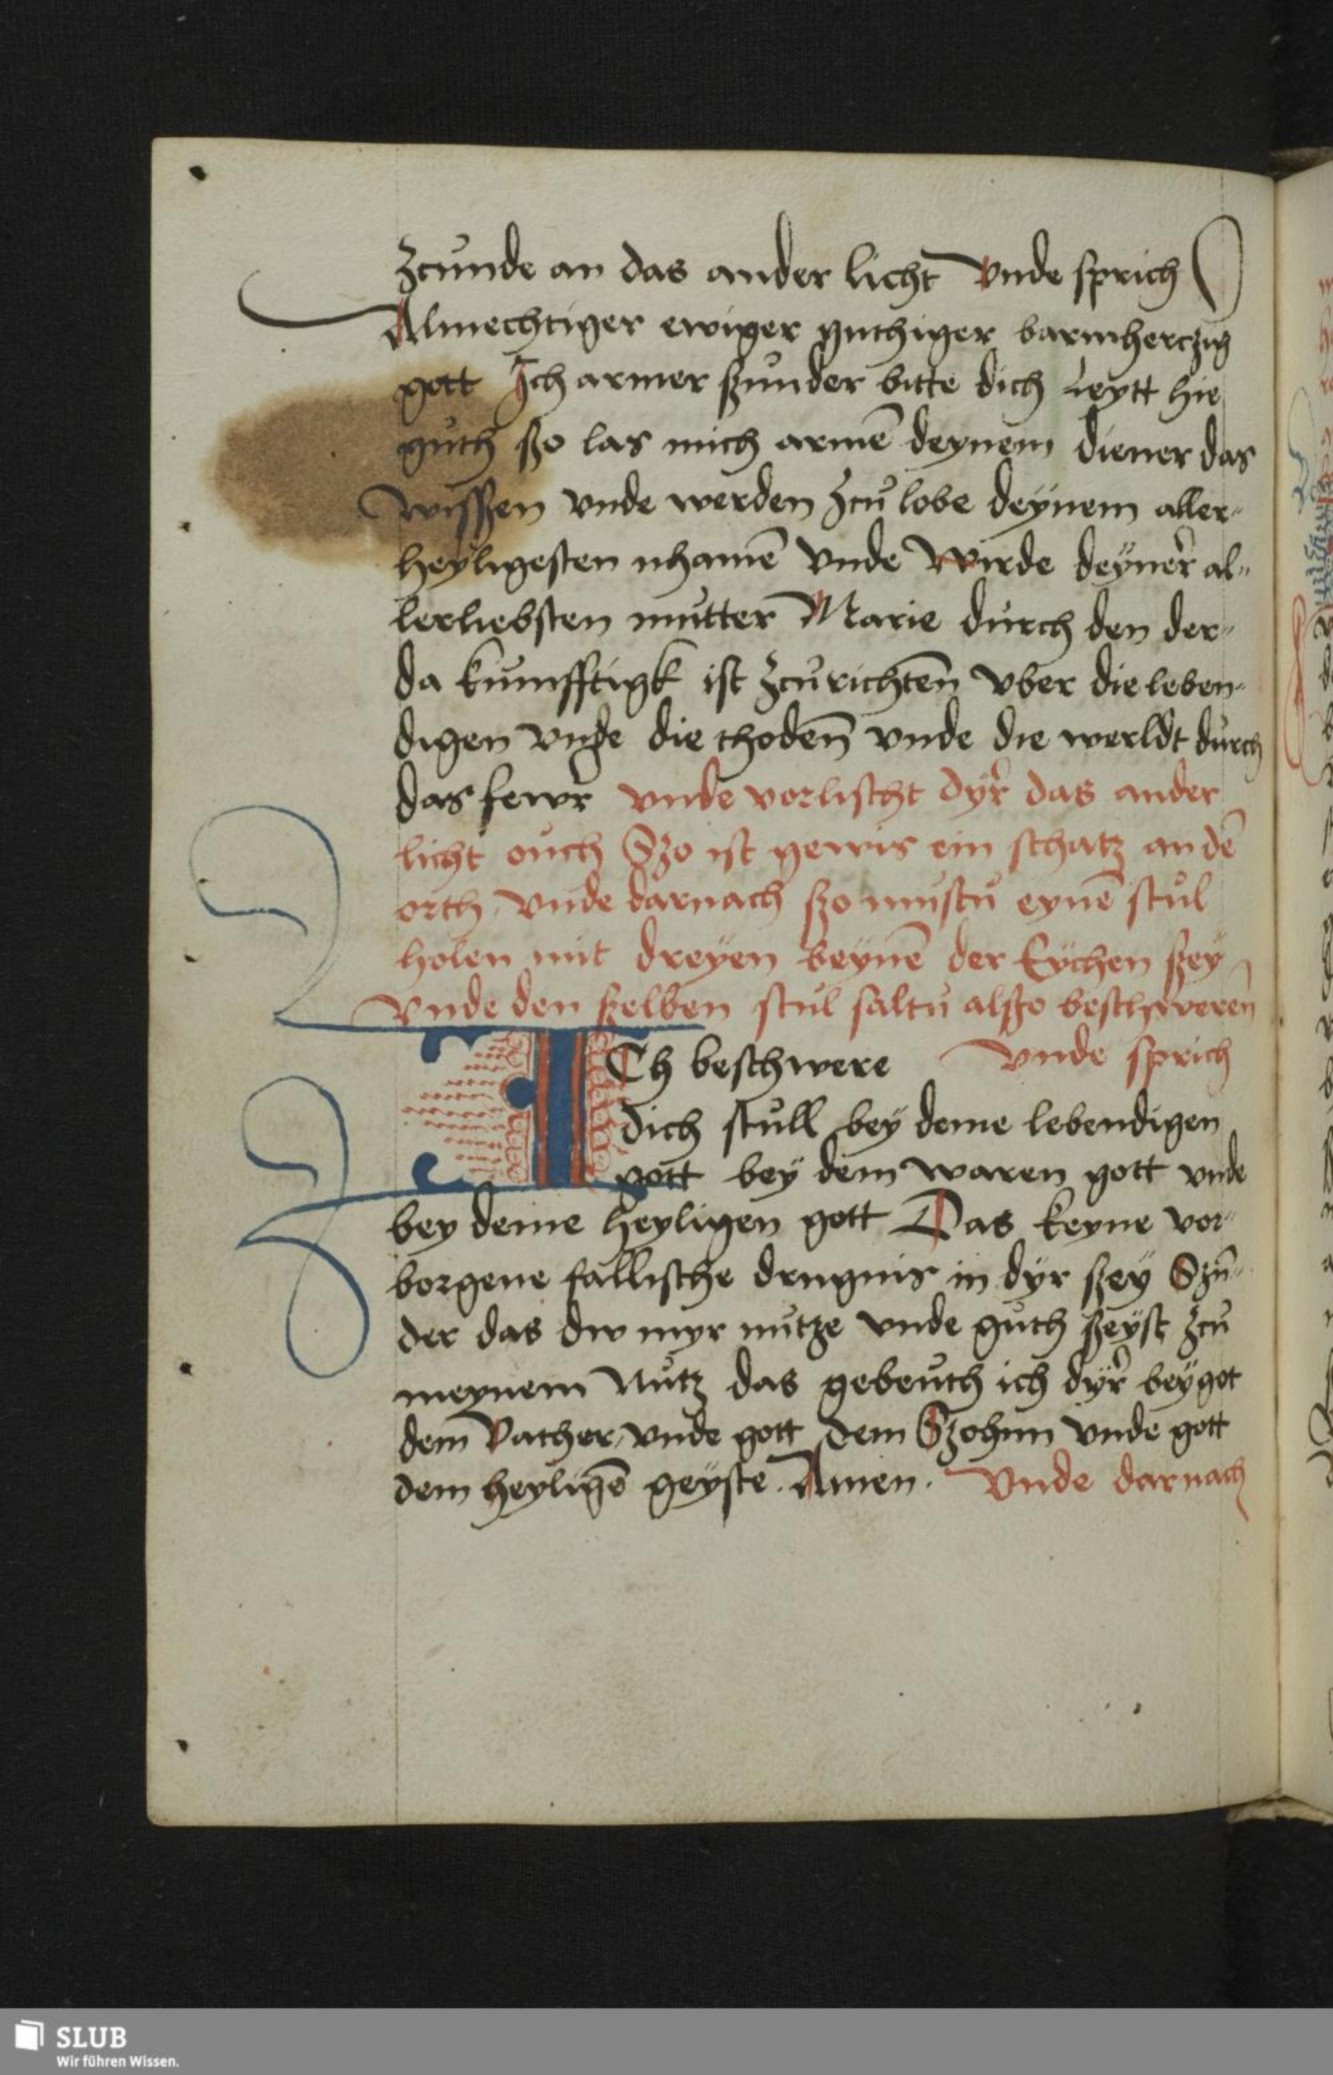 zcunde an das ander licht Vnde sprich O
Almechtiger ewiger guthiger barmherczig
gott Ich armer szunder bitte dich Leytt hie
guth szo las mich armē deynem diener das
wisszen vnde werden zcu lobe deynem aller-
heyligesten nhamē Vnde Wirde deyner al-
lerliebsten mutter Marie durch den der-
da kumfftigk ist zcurichten vber die leben-
digen vnde die thoden vnde die werldt durch
das fewr vnde vorlischt dyr das ander
licht ouch Szo ist gewis ein schatz an dē
orth Vnde darnach szo mustu eynē stul
holen mit dreyen beynē der Eychen szey
Vnde den szelben stul saltu alszo beschweren
ICh beschwere Vnde sprich
dich stull bey deme lebendigen
gott bey dem waren gott vnde
bey deme heyligen gott Das keyne vor-
borgene fallische drugnis in dyr szey Szū-
der das dw myr nutze vnde guth szeyst zcu
meynem Nutz das gebeuth ich dyr bey got
dem Vather vnde gott dem Szohnn vnde gott
dem heyligē geyste. Amen. Vnde darnach
SLUB
Wir führen Wissen.